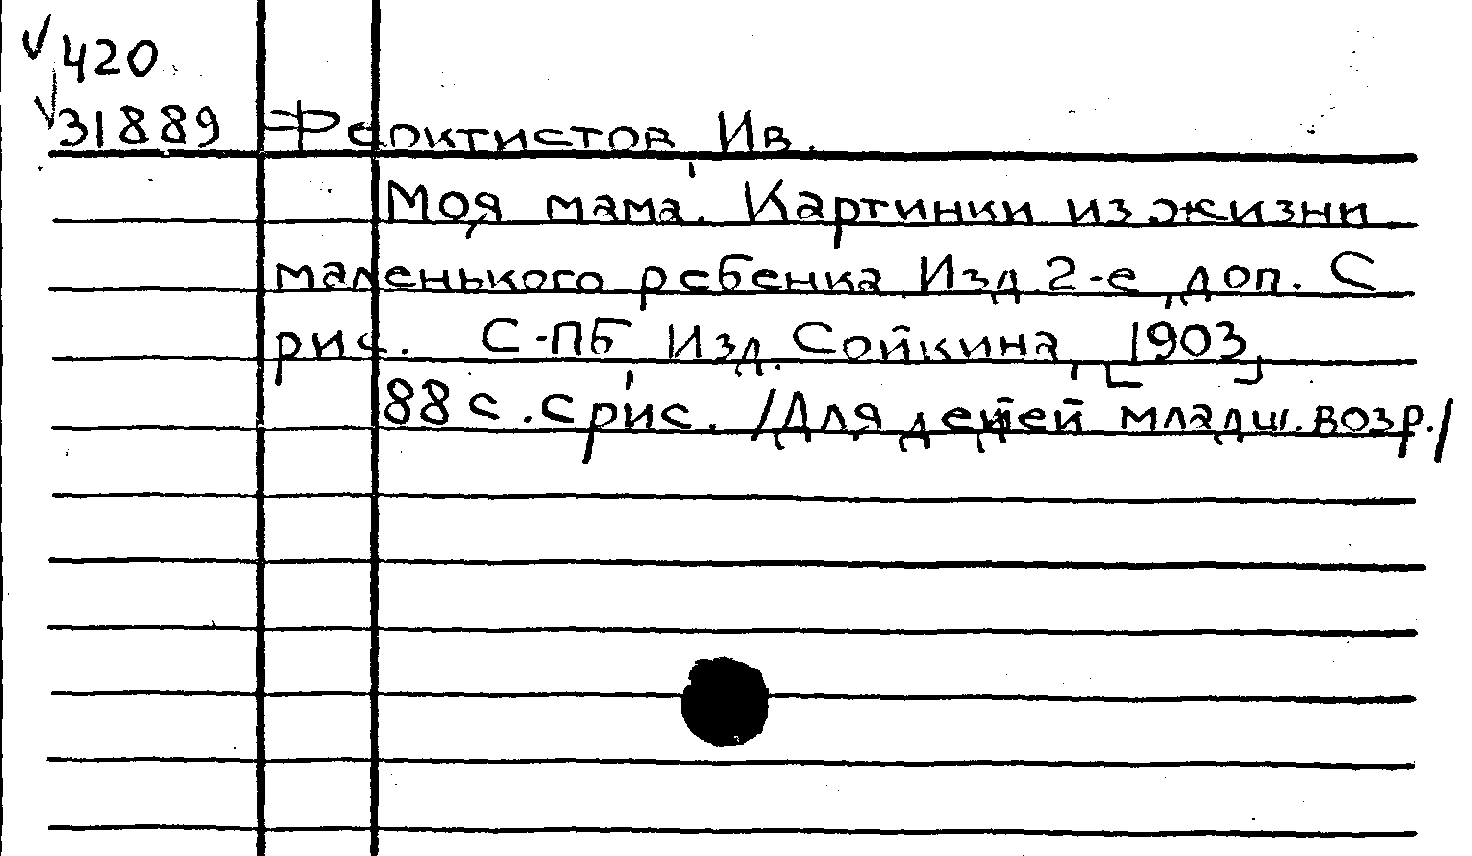 √420
√31889 Феоктистов, Ив.
Моя мама. Картинки из жизни
маленького ребенка Изд 2-е, доп. С
рис. С-ПБ, Изд. Сойкина, [1903]
88 с. с рис. /Для детей младш. возр./